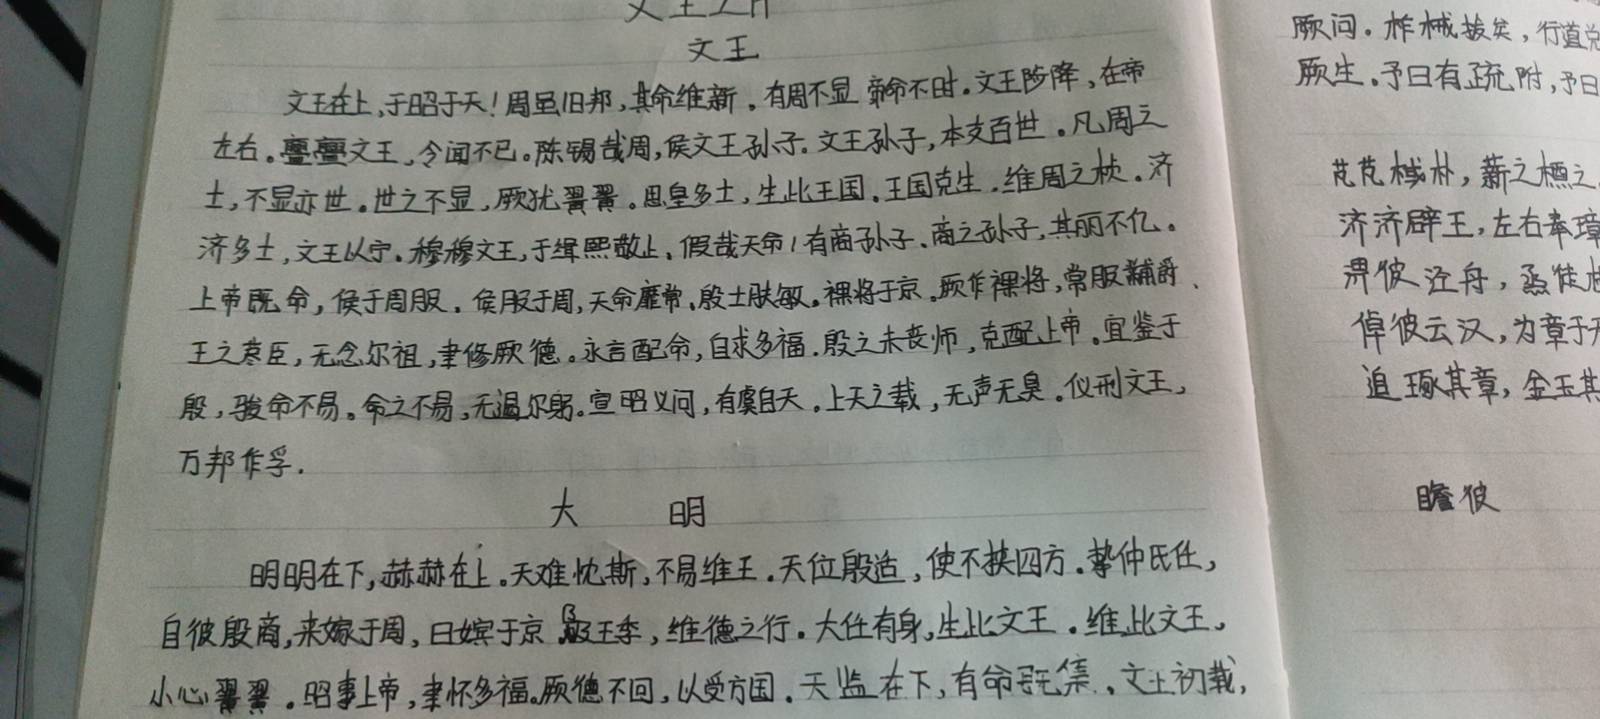 文王之什
文王
文王在上,于昭于天!周虽旧邦,其命维新。有周不显 帝命不时。文王陟降,在帝
左右。亹亹文王,令闻不已。陈锡哉周,侯文王孙子。文王孙子,本支百世。凡周之
士,不显亦世。世之不显,厥犹翼翼。思皇多士,生此王国。王国克生。维周之桢。济
济多士,文王以宁。穆穆文王,于缉熙敬止。假哉天命!有商孙子。商之孙子,其丽不亿。
上帝既命,侯于周服。侯服于周,天命靡常。殷士肤敏。裸将于京。厥作裸将,常服黼冔、
王之荩臣,无念尔祖,聿修厥德。永言配命,自求多福。殷之未丧师,克配上帝。宜鉴于
殷,骏命不易。命之不易,无遏尔躬。宣昭义问,有虞自天。上天之载,无声无臭。仪刑文王,
万邦作孚.
大 明
明明在下,赫赫在上。天难忱斯,不易维王。天位殷适,使不挟四方。挚仲氏任,
自彼殷商,来嫁于周,曰嫔于京 及王季,维德之行。大任有身,生此文王。维此文王,
小心翼翼。昭事上帝,聿怀多福。厥德不回,以受方国。天监在下,有命既集。文王初载,
厥问。柞棫拔矣,行道兑
厥生。予曰有疏附,予曰
芃芃棫朴,薪之槱之
济济辟王,左右奉璋
淠彼泾舟,烝徒
倬彼云汉,为章于天
追琢其章,金玉其
瞻彼